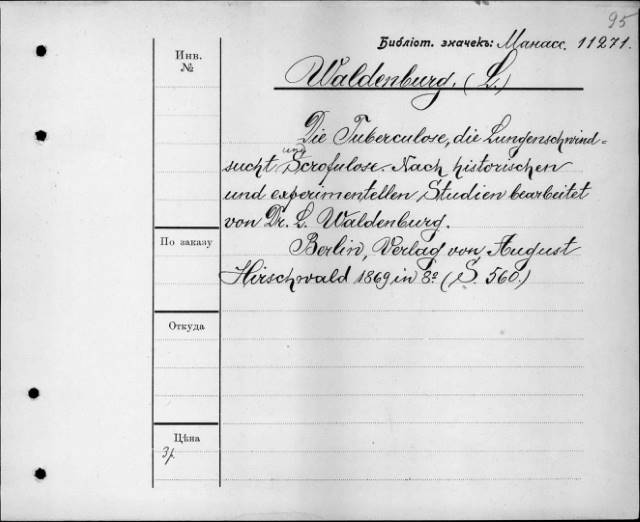 95
Библіот. значекъ: Манасс. 11271.
Инв.
№
Waldenburg. (L.)
Die Tuberculose, die Lungenschwind=
und
sucht Scrofulose. Nach historischen
und experimentellen Studien bearbeitet
von Dr. L. Waldenburg.
По заказу
Berlin, Verlag von August
Hirschwald 1869 in 8º (S. 560.)
Откуда
Цѣна
3р.